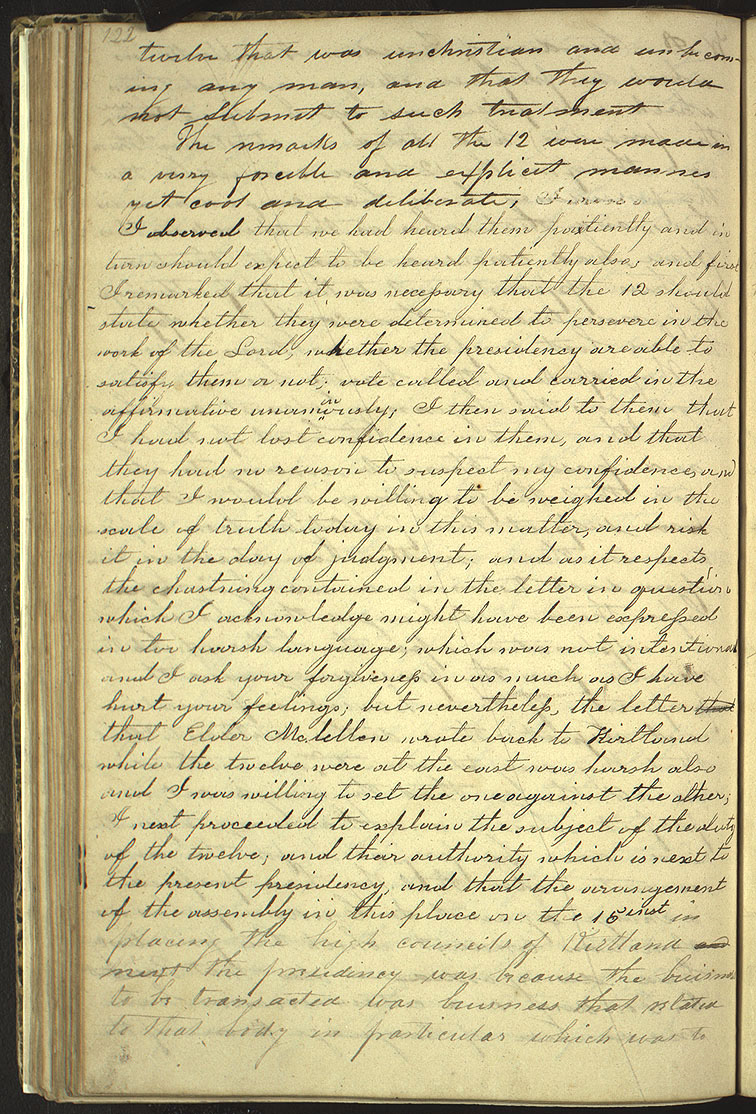 122
twelve that was unchristian and unbecom-
ing any man, and that they would
not submit to such treatment
The remarks of all the 12 were made in
a very forcible and explicit manner
yet cool and deliberate;
I observed that we had heard them patiently and in
turn should expect to be heard patiently also; and first
I remarked that it was necessary that the 12 should
state whether they were determined to persevere in the
work of the Lord, whether the presidency are able to
satisfy them or not; vote called and carried in the
affirmative unaminously; I then said to them that
I had not lost confidence in them, and that
they had no reason to suspect my confidence, and
that I would be willing to be weighed in the
scale of truth today in this matter, and risk
it in the day of judgment; and as it respects
the chastning contained in the letter in question
which I acknowledge might have been expressed
in too harsh language; which was not intentional
and I ask your forgiveness in as much as I have
hurt your feelings; but nevertheless, the letter that
that Elder Mclellen wrote back to Kirtland
while the twelve were at the east was harsh also
and I was willing to set the one against the other;
I next proceeded to explain the subject of the duty
of the twelve; and their authority which is next to
the present presidency, and that the arrangement
of the assembly in this place on the 15 inst in
placing the high councils of Kirtland and
next the presidency was because the buisness
to be transacted was buisness that related
to that body in particular which was to